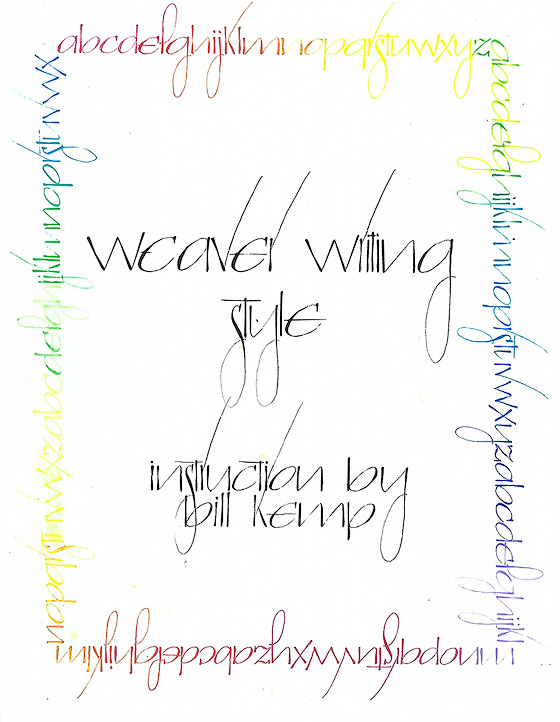 abcdefghijklmnopqrstuvwxyz
abcdefghijklmnopqrstuvwxyzabcdefghijkl
mnopqrstuvwxyzabcdefghijklm
nopqrstuvwxyzabcdefghijklmnopqrstuvwx
weaver writing
style
instruction by
bill kemp